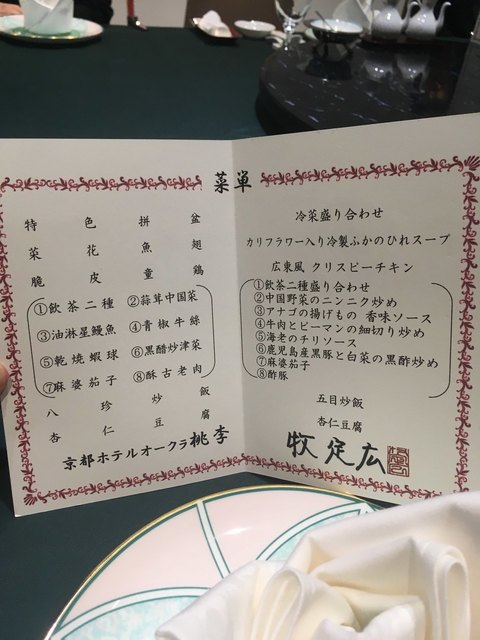 菜単
特色拼盆
菜花魚翅
脆皮童鶏
①飲茶二種 ②蒜茸中国菜
③油淋星鰻魚 ④青椒牛絲
⑤乾焼蝦球 ⑥黒醋炒津菜
⑦麻婆茄子 ⑧酥古老肉
八珍炒飯
杏仁豆腐
京都ホテルオークラ桃李
冷菜盛り合わせ
カリフラワー入り冷製ふかのひれスープ
広東風 クリスピーチキン
①飲茶二種盛り合わせ
②中国野菜のニンニク炒め
③アナゴの揚げもの 香味ソース
④牛肉とピーマンの細切り炒め
⑤海老のチリソース
⑥鹿児島産黒豚と白菜の黒酢炒め
⑦麻婆茄子
⑧酢豚
五目炒飯
杏仁豆腐
牧定広